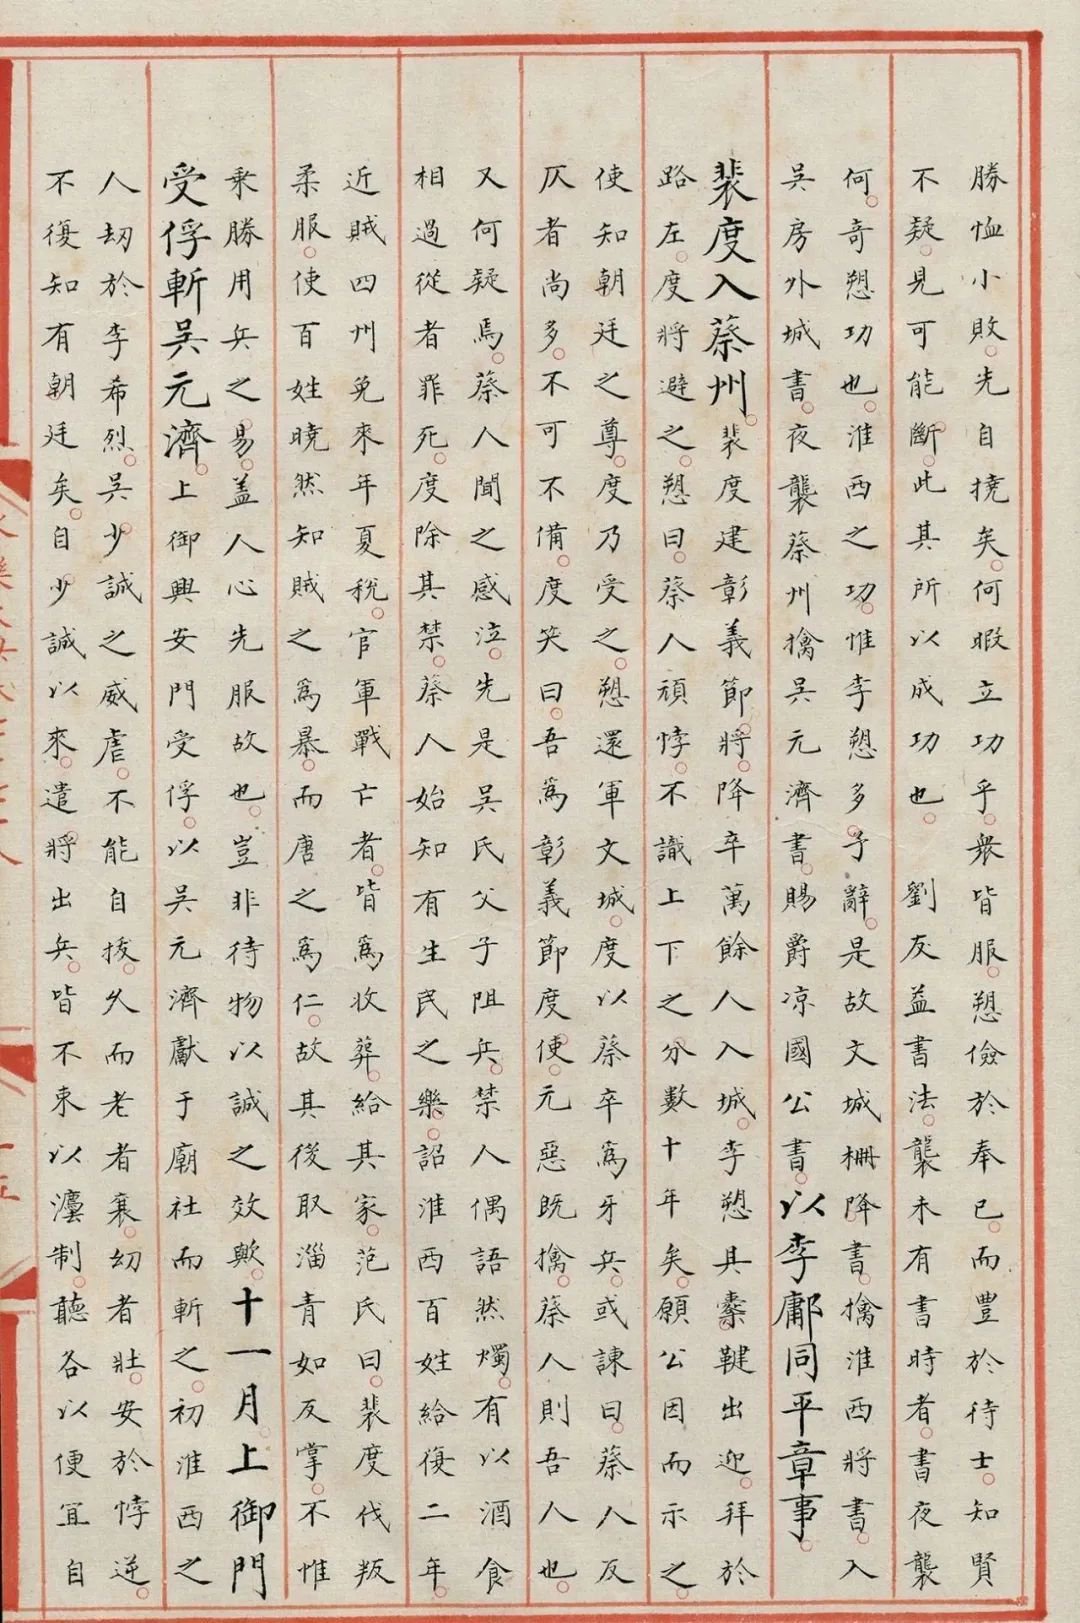 勝恤小敗。先自撓矣。何暇立功乎。衆皆服。愬儉於奉已。而豐於待士。知賢
不疑。見可能斷。此其所以成功也。 劉友益書法。襲未有書時者。書夜襲
何。奇愬功也。淮西之功。惟李愬多予辭。是故文城柵降書。擒淮西將書。入
吳房外城書。夜襲蔡州擒吳元濟書。賜爵凉國公書。以李鄘同平章事。
裴度入蔡州。裴度建彰義節。將降卒萬餘人入城。李愬具櫜鞬出迎。拜於
路左。度將避之。愬曰。蔡人頑悖。不識上下之分數十年矣。願公因而示之。
使知朝廷之尊。度乃受之。愬還軍文城。度以蔡卒爲牙兵。或諫曰。蔡人反
仄者尚多。不可不備。度笑曰。吾爲彰義節度使。元惡既擒。蔡人則吾人也。
又何疑焉。蔡人聞之感泣。先是吳氏父子阻兵。禁人偶語然燭。有以酒食
相過從者罪死。度除其禁。蔡人始知有生民之樂。詔淮西百姓給復二年。
近賊四州免來年夏稅。官軍戰亡者。皆爲收葬。給其家。范氏曰。裴度伐叛
柔服。使百姓曉然知賊之爲暴。而唐之爲仁。故其後取淄青如反掌。不惟
乗勝用兵之易。盖人心先服故也。豈非待物以誠之效歟。十一月上御門
受俘斬吳元濟。上御興安門受俘。以吳元濟獻于廟社而斬之。初淮西之
人劫於李希烈。吳少誠之威虐。不能自拔。久而老者衰。幼者壯。安於悖逆。
不復知有朝廷矣。自少誠以來。遣將出兵。皆不束以灋制。聽各以便宜自